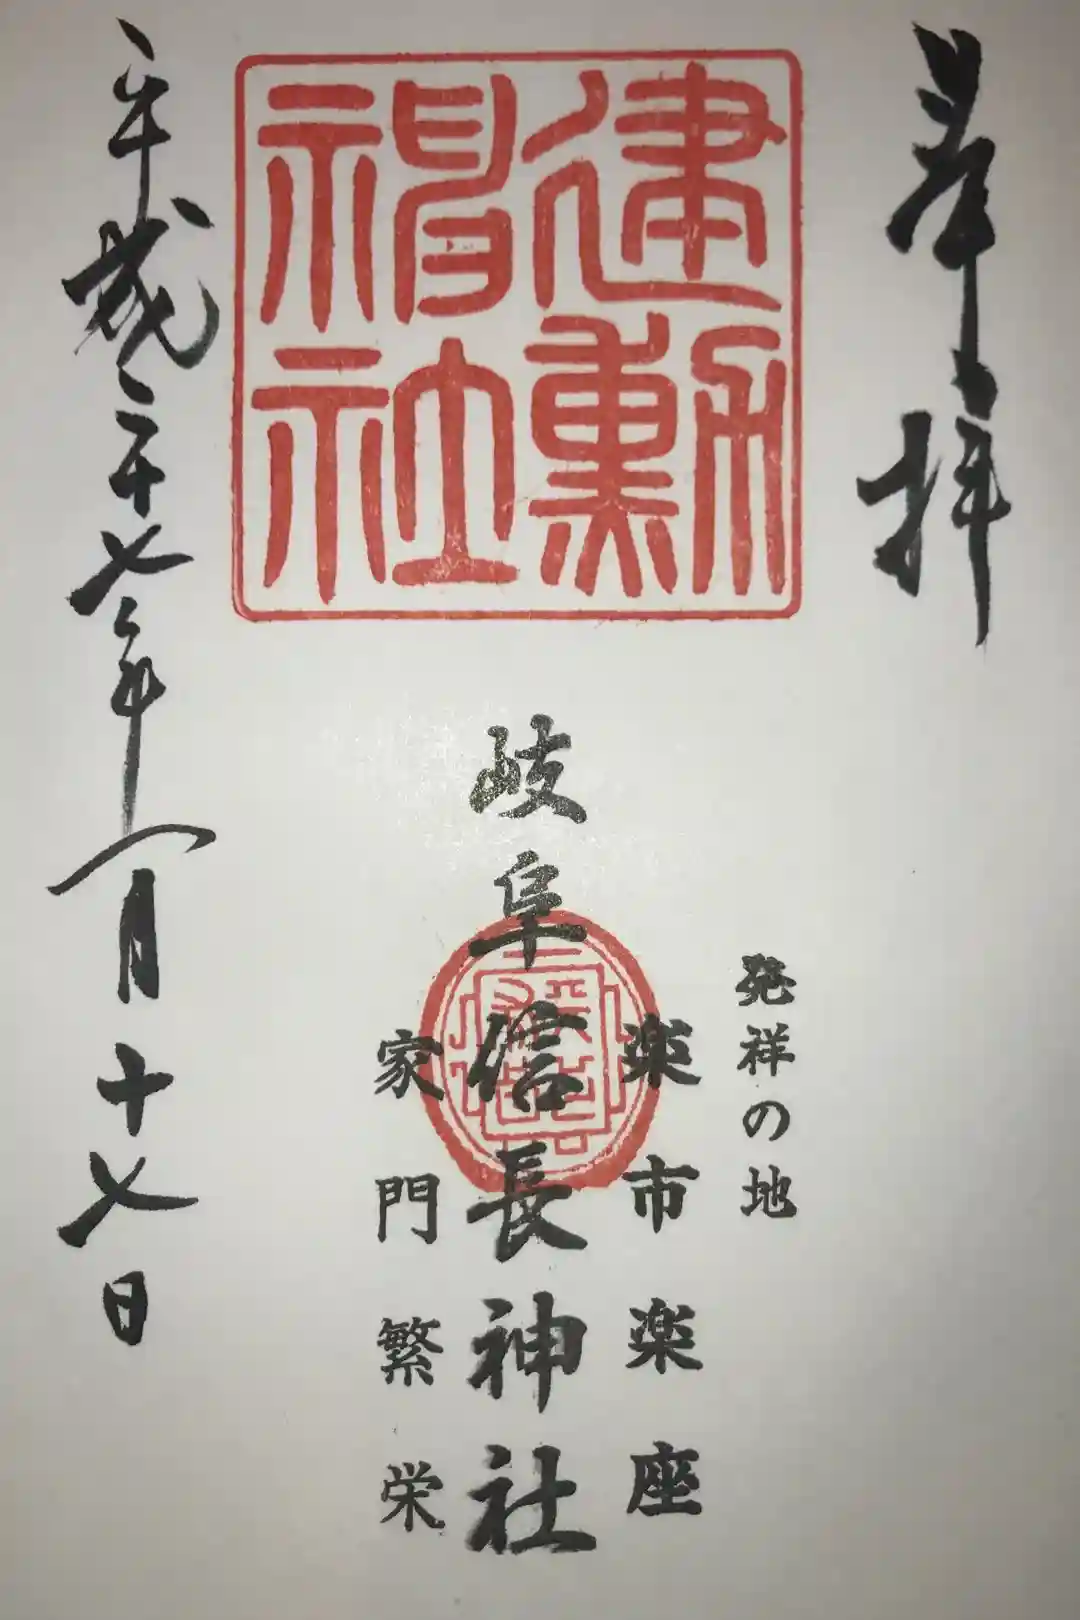 奉拝
建勲
神社
発祥の地
楽市楽座
岐阜信長神社
家門繁栄
平成二十七年一月十七日